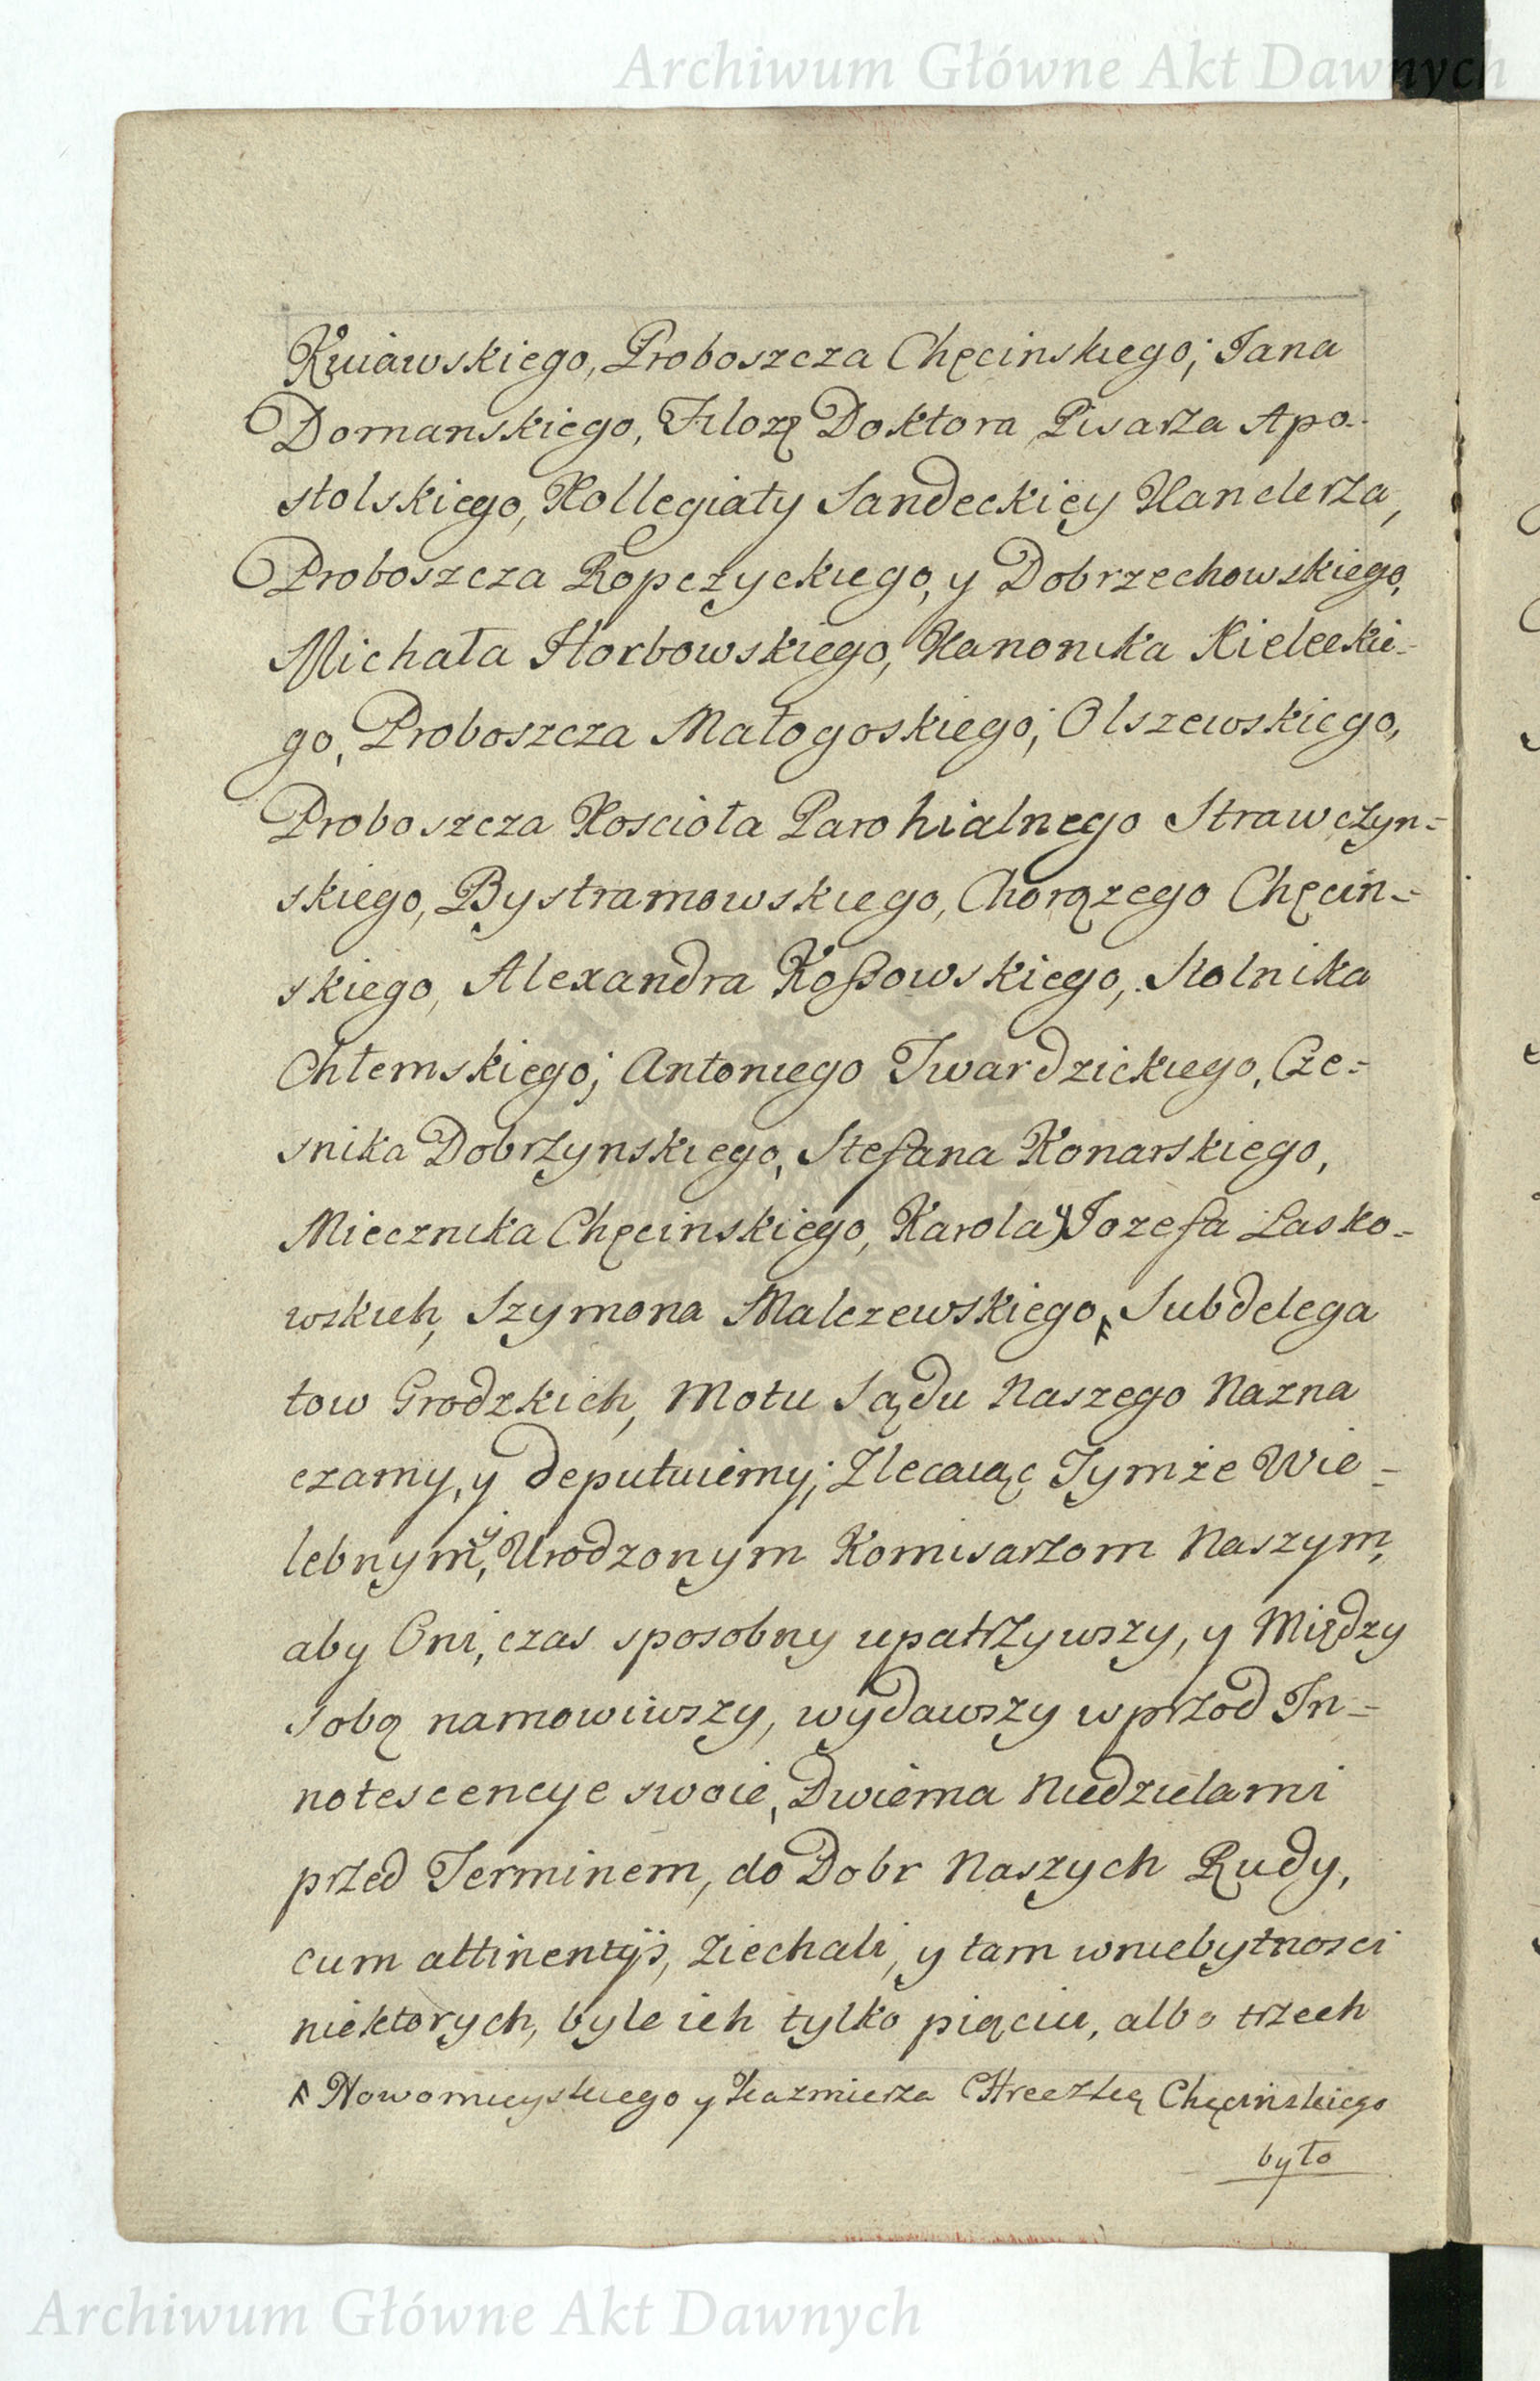 Archiwum Główne Akt Dawnych
Kuiawskiego, Proboszcza Chęcinskiego; Jana
Domanskiego, Filozą Doktora Pisarza Apo-
stolskiego, Kollegiaty Sandeckiey Kanclerza,
Proboszcza Ropczyckiego, y Dobrzechowskiego,
Michała Horbowskiego, Kanonika Kieleckie-
go, Proboszcza Małogoskiego; Olszewskiego,
Proboszcza Koscioła Parohialnego Strawczyn=
skiego, Bystramowskiego, Chorązego Chęcin=
skiego, Alexandra Koßowskiego, Stolnika
Chłemskiego; Antoniego Twardzickiego, Cze=
snika Dobrzynskiego, Stefana Konarskiego,
Miecznika Chęcinskiego, Karola y Jozefa Lasko-
wskich, Szymona Malczewskiego, Subdelega
tow Grodzkich, Motu Sądu Naszego Nazna
czamy, y deputuiemy; Zlecaiąc Tymże Wie-
lebnym, y Urodzonym Komisarzom Naszym,
aby Oni, czas sposobny upatrzywszy, y Między
sobą namowiwszy, wydawszy wprzod In=
notescencye swoie, Dwiema Niedzielami
przed Terminem, do Dobr Naszych Rudy,
cum attinentijs, ziechali, y tam wniebytnosci
niektorych, byle ich tylko pięciu, albo trzech
Nowomieyskiego y Kazmierza Chęcinskiego
było
Archiwum Główne Akt Dawnych